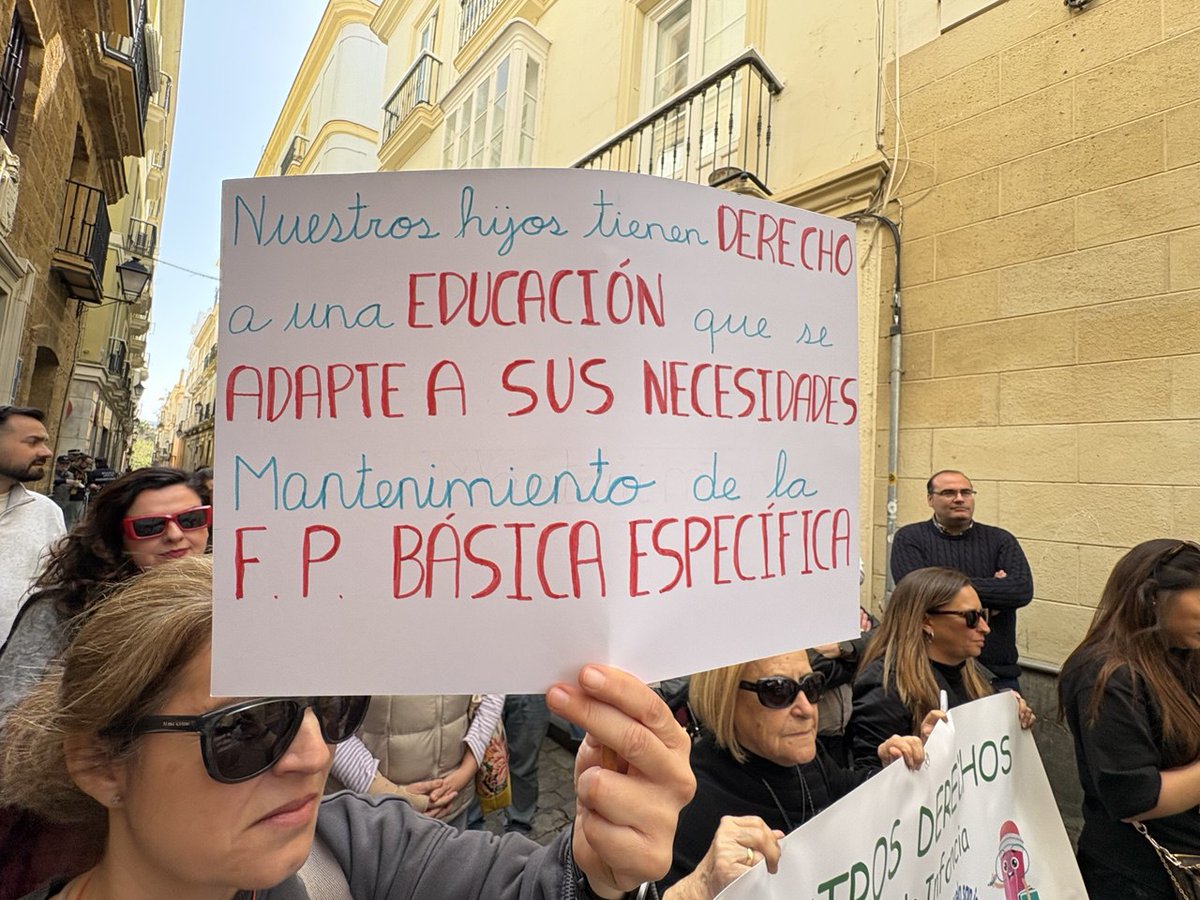 Nuestros hijos tienen DERECHO
a una EDUCACIÓN que se
ADAPTE A SUS NECESIDADES
Mantenimiento de la
F. P. BÁSICA ESPECÍFICA
DERECHOS
Infancia